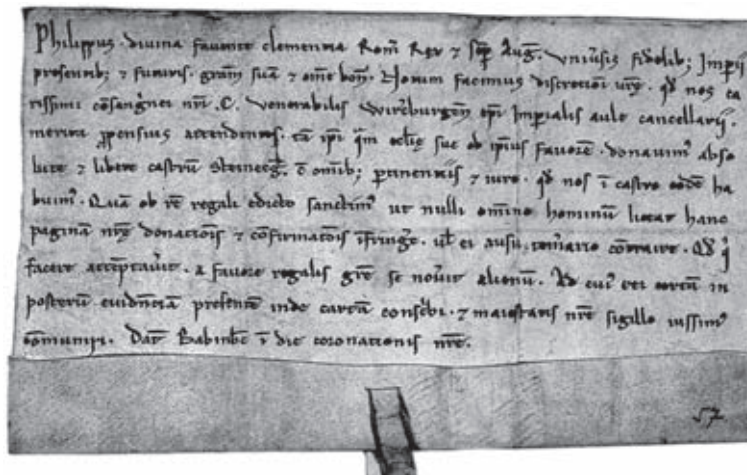 Philippus · divina favente clementia Rom̄ Rex ⁊ semp̄ Aug̅ · Uniūsis fidelib; Imperii
presentib; ⁊ futuris · grām suā ⁊ om̄e bonū · Notum facimus discretioni vr̄e · qđ nos ca
rissimi cōsanguinei nr̄i · C · venerabilis Wirceburgen̄ ep̄i Imperialis aule cancellarij ·
merita ꝓpensius attendentes · tā ip̄i q̄m eccl̄ie sue ob ip̄ius favorē · donavimꝰ abso
lute ⁊ libere castrū Steinecg̅ · c̄ omīb; ꝑtinentiis ⁊ iure · qđ nos ī castro eodē ha
buimꝰ · Quā ob rē regali edicto sanctimꝰ ut nulli om̄ino hominū liceat hanc
paginā nr̄e donatiōis ⁊ cōfirmatōis īfring̅e · ul̄ ei ausu temerario cōtraire · Qđ q̄
facere attēptav̄it · a favore regalis gr̄e se nov̄it alienū · Ad cuiꝰ rei certū in
posterū evidentiā presentē inde cartā conscⁱbi · ⁊ maiestatis nr̄e sigillo iussimꝰ
cōmuniri · Dat̄ Babinbc̄ ī die coronationis nr̄e ·
57